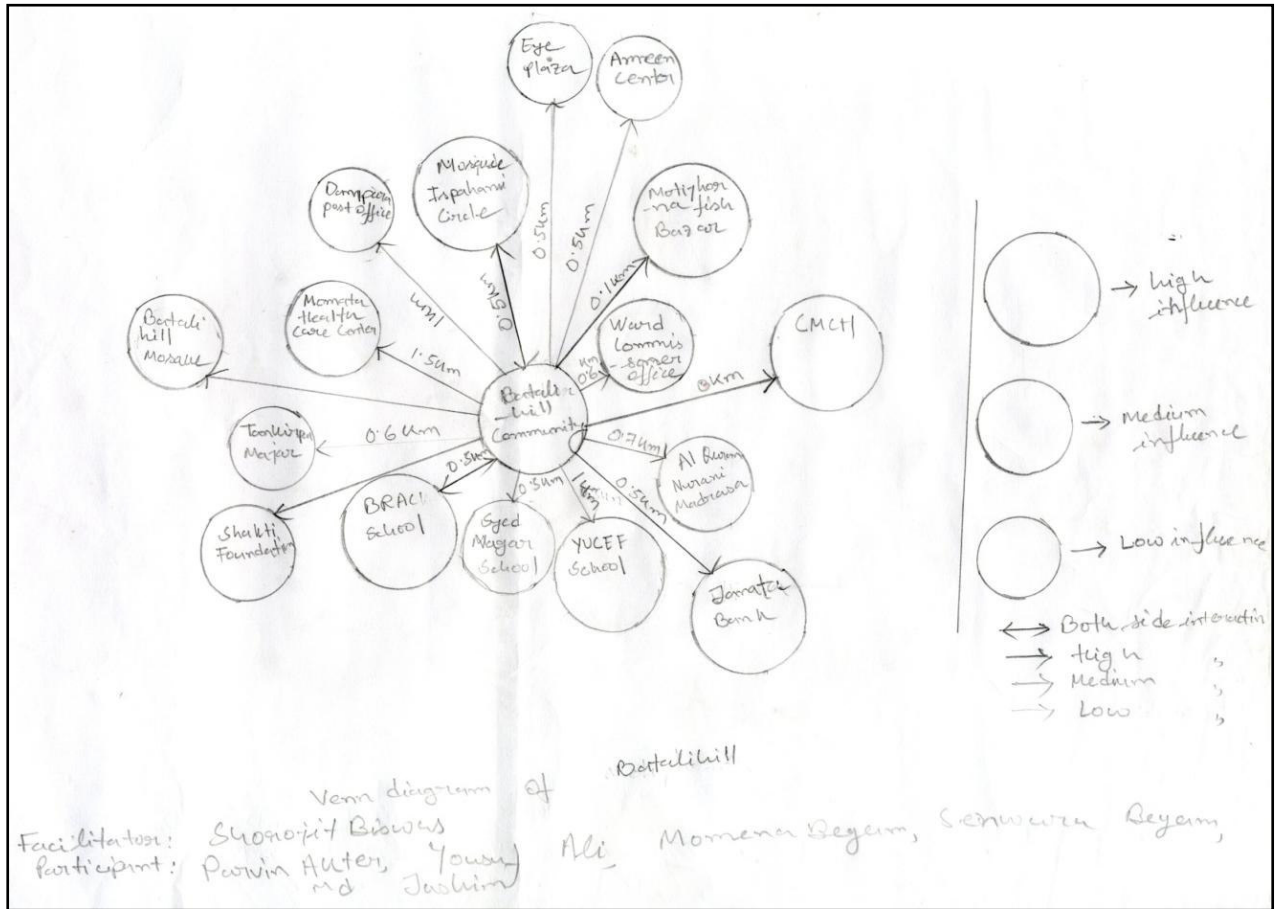 Eye
Plaza
Ameen
Center
Mosque
Ispahani
Circle
Dampara
post office
Motijhor
-na fish
Bazar
Momata
Health
Care Center
Batali
hill
Mosque
Ward
Commis
-sioner
office
CMCH
Batali
-hill
Community
Tankirpan
Majar
Al Quran
Nurani
Madrasa
Shakti
Foundation
BRAC
School
Syed
Nagar
School
YUCEF
School
Jonata
Bank
0.5km
0.5km
0.5km
0.1km
1km
1.5km
0.6 km
km
0.6 km
0.7km
0.5km
0.3km
1km
0.5km
→ high
influence
→ Medium
influence
→ Low influence
↔ Both side interactin
→ High "
→ Medium "
→ Low "
Batalihill
Venn diagram of
Facilitator: Shorojit Biswas
Participint: Parvin Akter, Yousuf Ali, Momena Begam, Senwara Begam,
Md Jashim